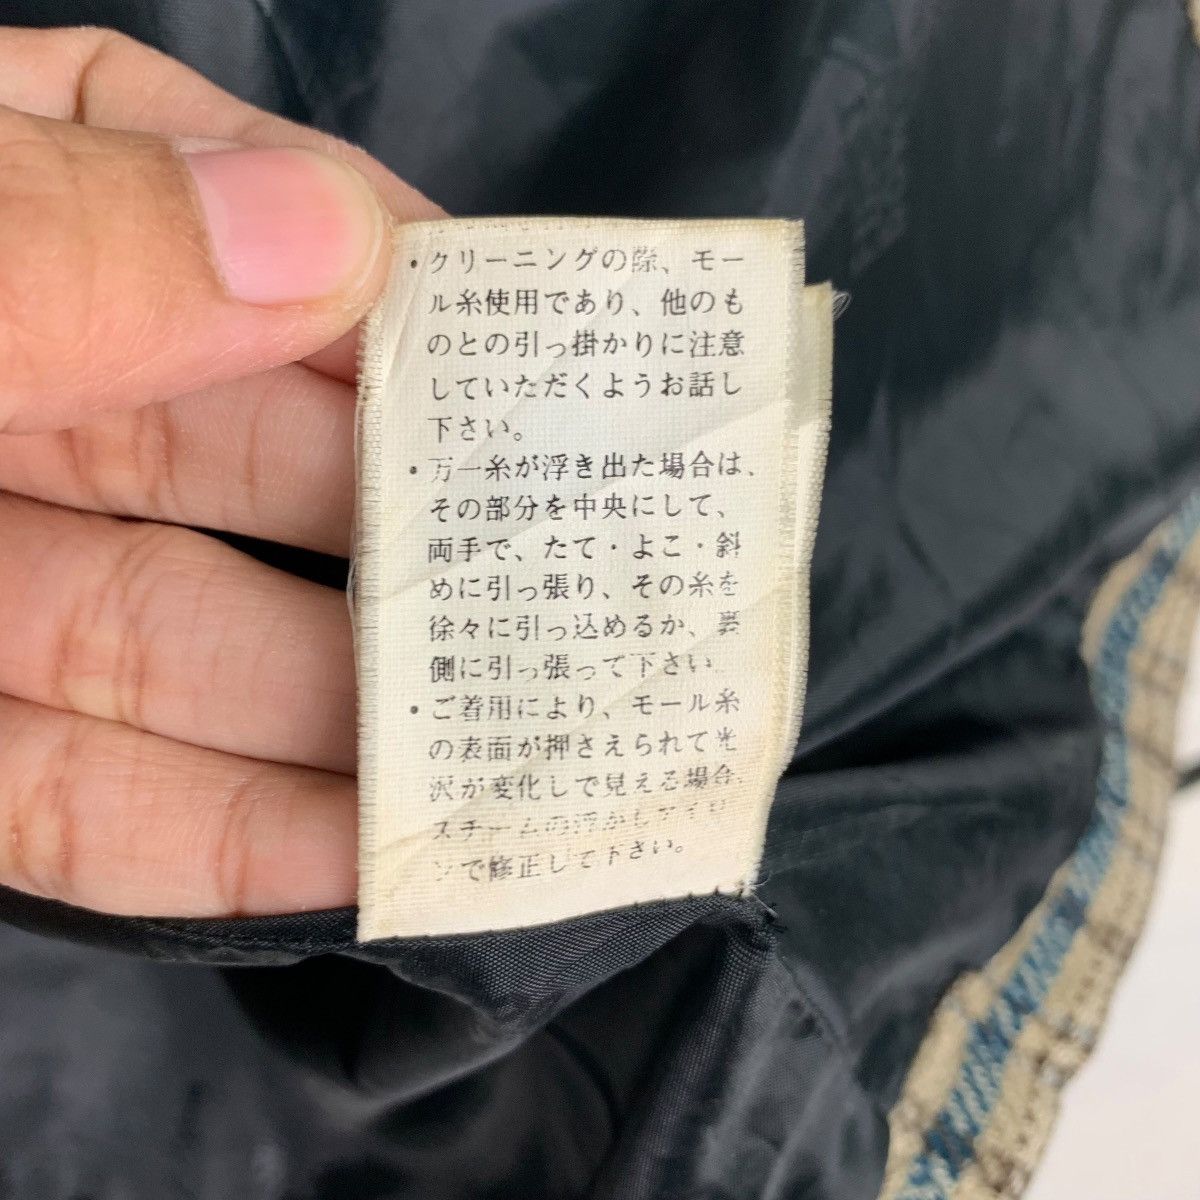 ・クリーニングの際、モー
ル糸使用であり、他のも
のとの引っ掛かりに注意
していただくようお話し
下さい。
・万一糸が浮き出た場合は、
その部分を中央にして、
両手で、たて・よこ・斜
めに引っ張り、その糸を
徐々に引っ込めるか、裏
側に引っ張って下さい
・ご着用により、モール糸
の表面が押さえられて光
沢が変化して見える場合、
スチームの浮かしアイロ
ンで修正して下さい。